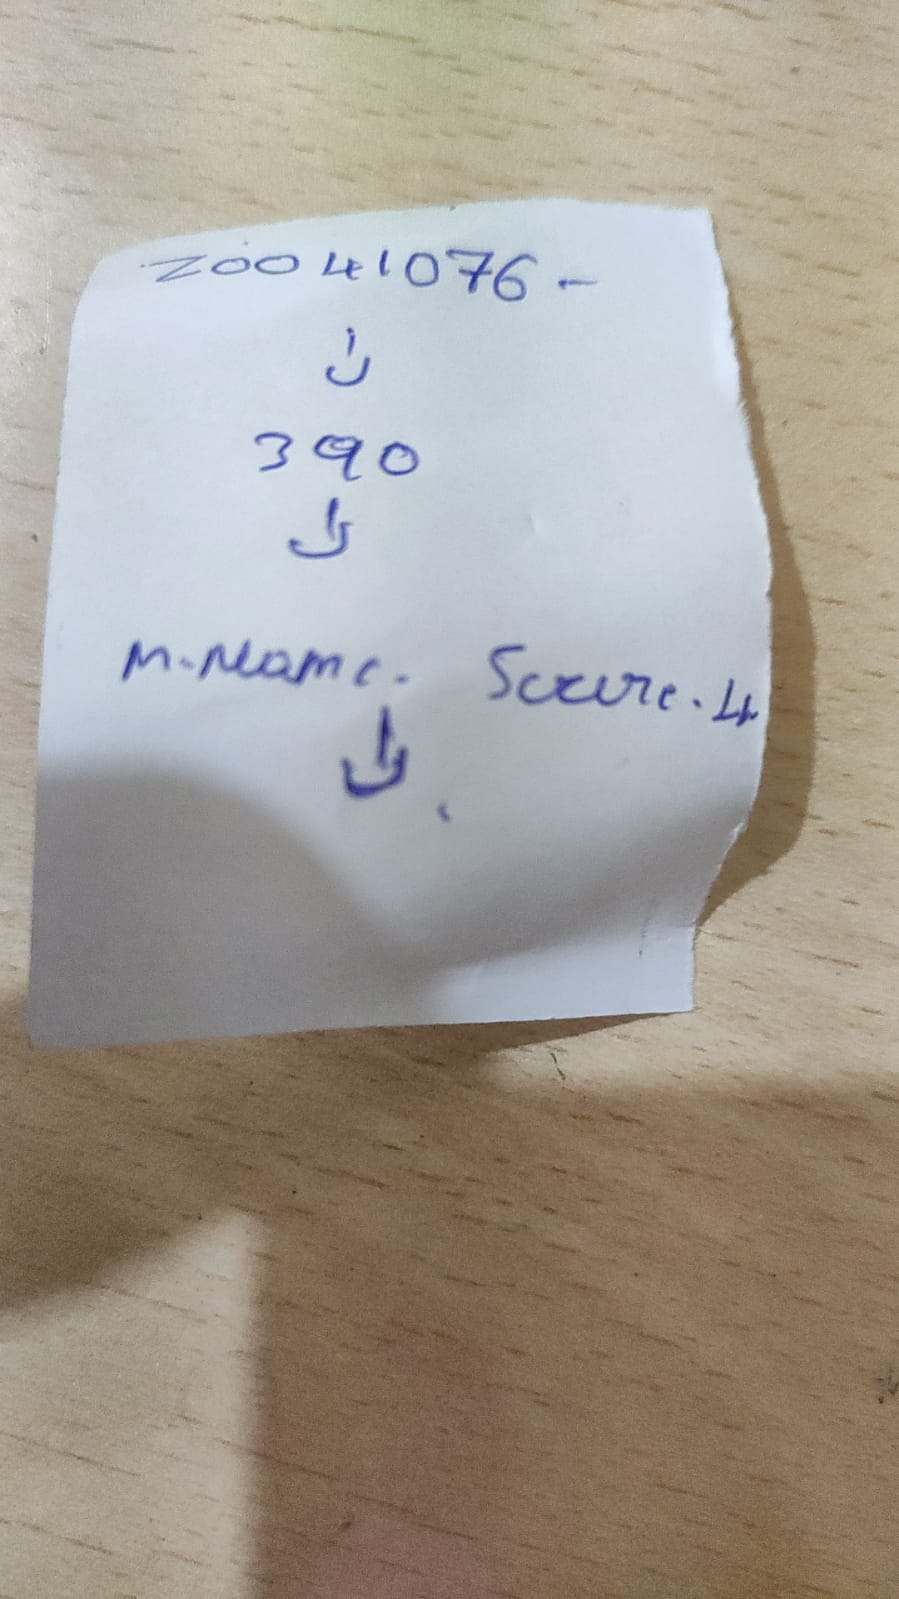 20041076-
↓
390
↓
M.Name. Secure.4
↓